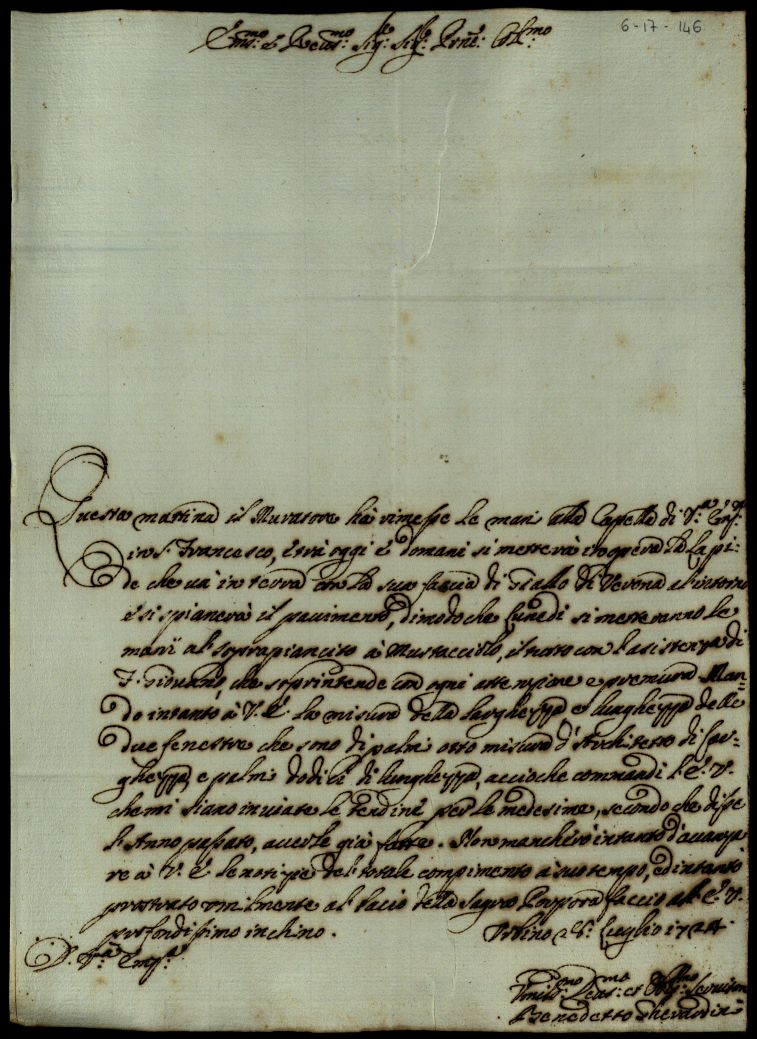 6-17-146
Em.mo e Reu.mo Sig.r Sig.r Prñe Col.mo
Questa mattina il Muratore hà rimesse le mani alla Capella di V.ra Em.za
in S. Francesco, e trà oggi e domani si metterà in opera la Lapi-
de che uà in terra con la sua fascia di Giallo di Verona al intorno
e si spianerà il pavimento, di modo che Lunedi si metteranno le
mani al soprapiancito à Mustacciolo, il tutto con l'asistenza di
che soprintende con ogni attenzione e premura. Man-
do intanto à V. E. la misura della larghezza e lunghezza delle
due fenestre che sono di palmi otto misura d'Architetto di lar-
ghezza, e palmi dodici di lunghezza, accioche commandi l'E. V.
che mi siano inuiate le tendine per le medesime, secondo che disse
l'Anno passato, auerle già fatte. Non mancherò intanto d'auanza
re à V. E. le notizie del totale compimento à suo tempo, ed intanto
prostrato umilmente al bacio della Sagra Porpora faccio all'E. V.
profondissimo inchino. Urbino Luglio 1724
D. V.ra Em.za
Umilis.mo Deuot.mo et Obl.mo Seruitore
Benedetto